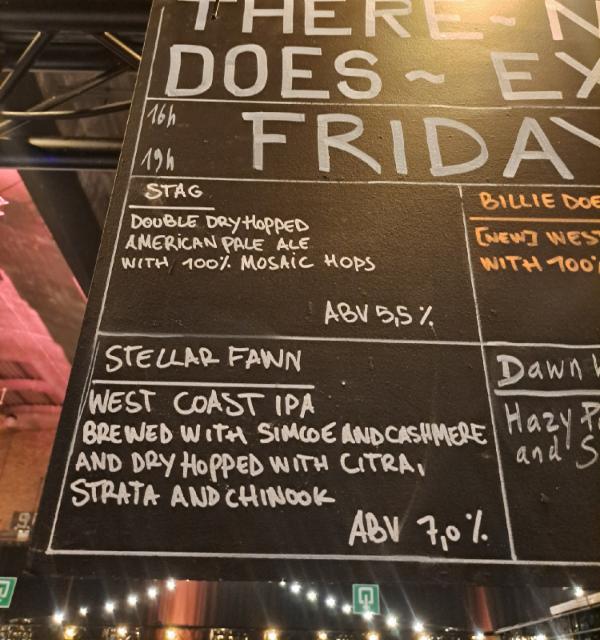 THERE~
DOES~ EX
16h
19h
FRIDAY
STAG
DOUBLE DRY HOPPED
AMERICAN PALE ALE
WITH 100% MOSAIC HOPS
ABV 5,5%
BILLIE DOE
[NEW] WEST
WITH 100%
STELLAR FAWN
WEST COAST IPA
BREWED WITH SIMCOE AND CASHMERE
AND DRY HOPPED WITH CITRA,
STRATA AND CHINOOK
ABV 7,0%
Dawn
Hazy
and S